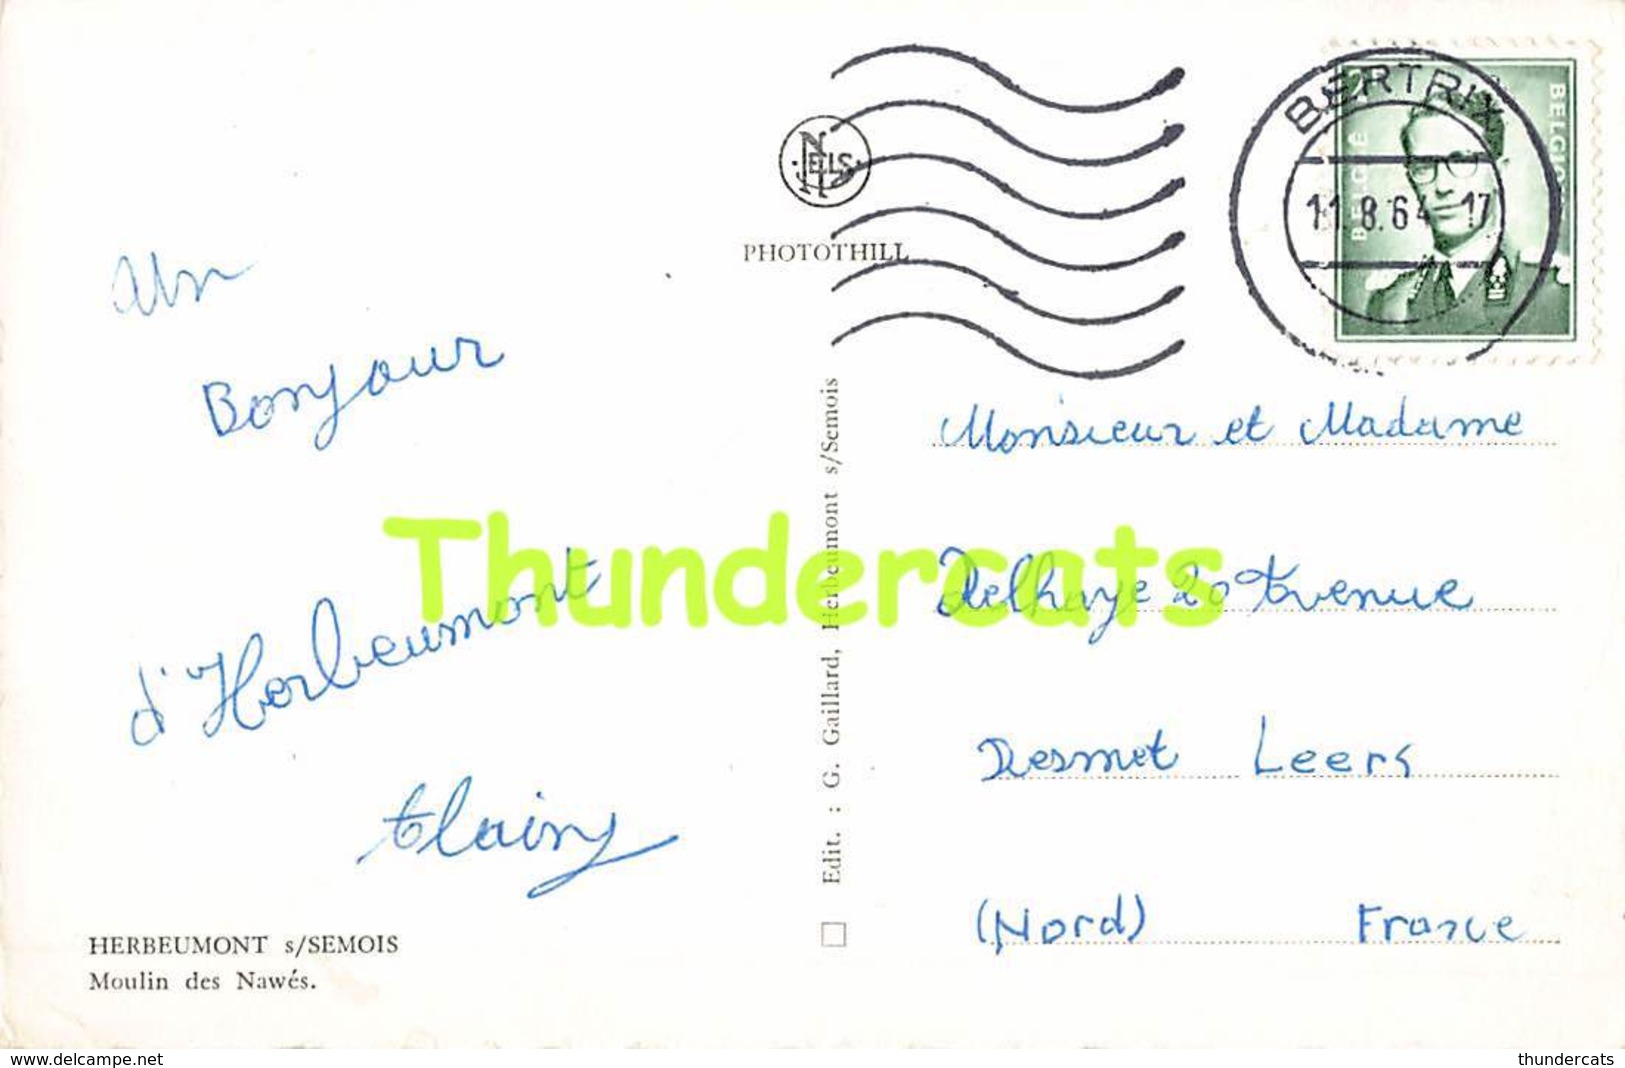 Un
Bonjour
d'Herbeumont
Alain
HERBEUMONT s/SEMOIS
Moulin des Nawés.
NELS
PHOTOTHILL
Edit. : G. Gaillard, Herbeumont s/Semois
BERTRIX
11.8.64 17
BELGIË
Monsieur et Madame
Delhaye 20 Avenue
Desmet Leers
(Nord) France
Thundercats
www.delcampe.net
thundercats